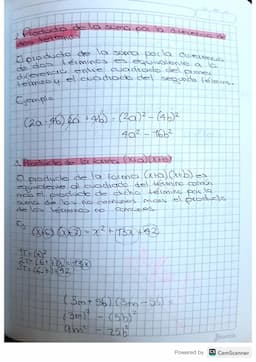 2. Producto de la suma por la diferencia de
dos términos
El producto de la suma por la diferencia
de dos términos es equivalente a la
diferencia entre cuadrado del primer
término y el cuadrado del segundo término.
Ejemplo
(2a+4b)(2a+4b) = (2a)² - (4b)²
4a² - 16b²
3. Producto de la forma (x+a)(x+b)
El producto de la forma (x+a)(x+b) es
equivalente al cuadrado del término común
más el producto de dicho término por la
suma de los no comunes más el producto
de los términos no comunes.
(x+6)(x+7) = x² + 13x + 42
(3m+5b).(3m-5b) =
(3m)² - (5b)²
9m² - 25b²
Powered by CS CamScanner